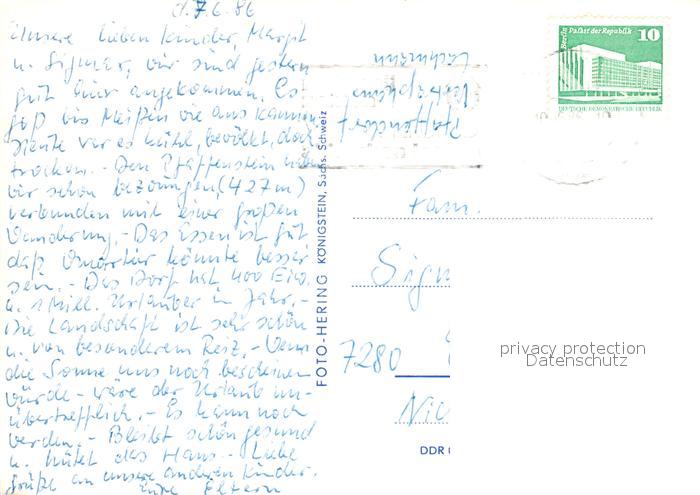 d. 7.6.86
Unsere lieben Kinder, Margit
u. Sigmar, wir sind gestern
gut hier angekommen. Es
goß bis Meißen wie aus Kannen
Heute war es kühl, bewölkt, doch
trocken. - Den Pfaffenstein haben
wir schon bezwungen, (427m)
verbunden mit einer großen
Wanderung. - Das Essen ist gut
daß Quartier könnte besser
sein. - Das Dorf hat 400 Einw.
u. 1 Mill. Urlauber im Jahr. -
Die Landschaft ist sehr schön
u. von besonderem Reiz. - Wenn
die Sonne uns noch bescheinen
würde - wäre der Urlaub un-
übertrefflich. - Es kann noch
werden. - Bleibt schön gesund
u. hütet das Haus. - Liebe
Grüße an unsere anderen Kinder.
Eure Eltern
Pfaffendorf
Lachmann
FOTO-HERING KÖNIGSTEIN, Sächs. Schweiz
Berlin Palast der Republik 10
DEUTSCHE DEMOKRATISCHE REPUBLIK
Fam.
Sigm
7280
Nic
DDR
privacy protection
Datenschutz